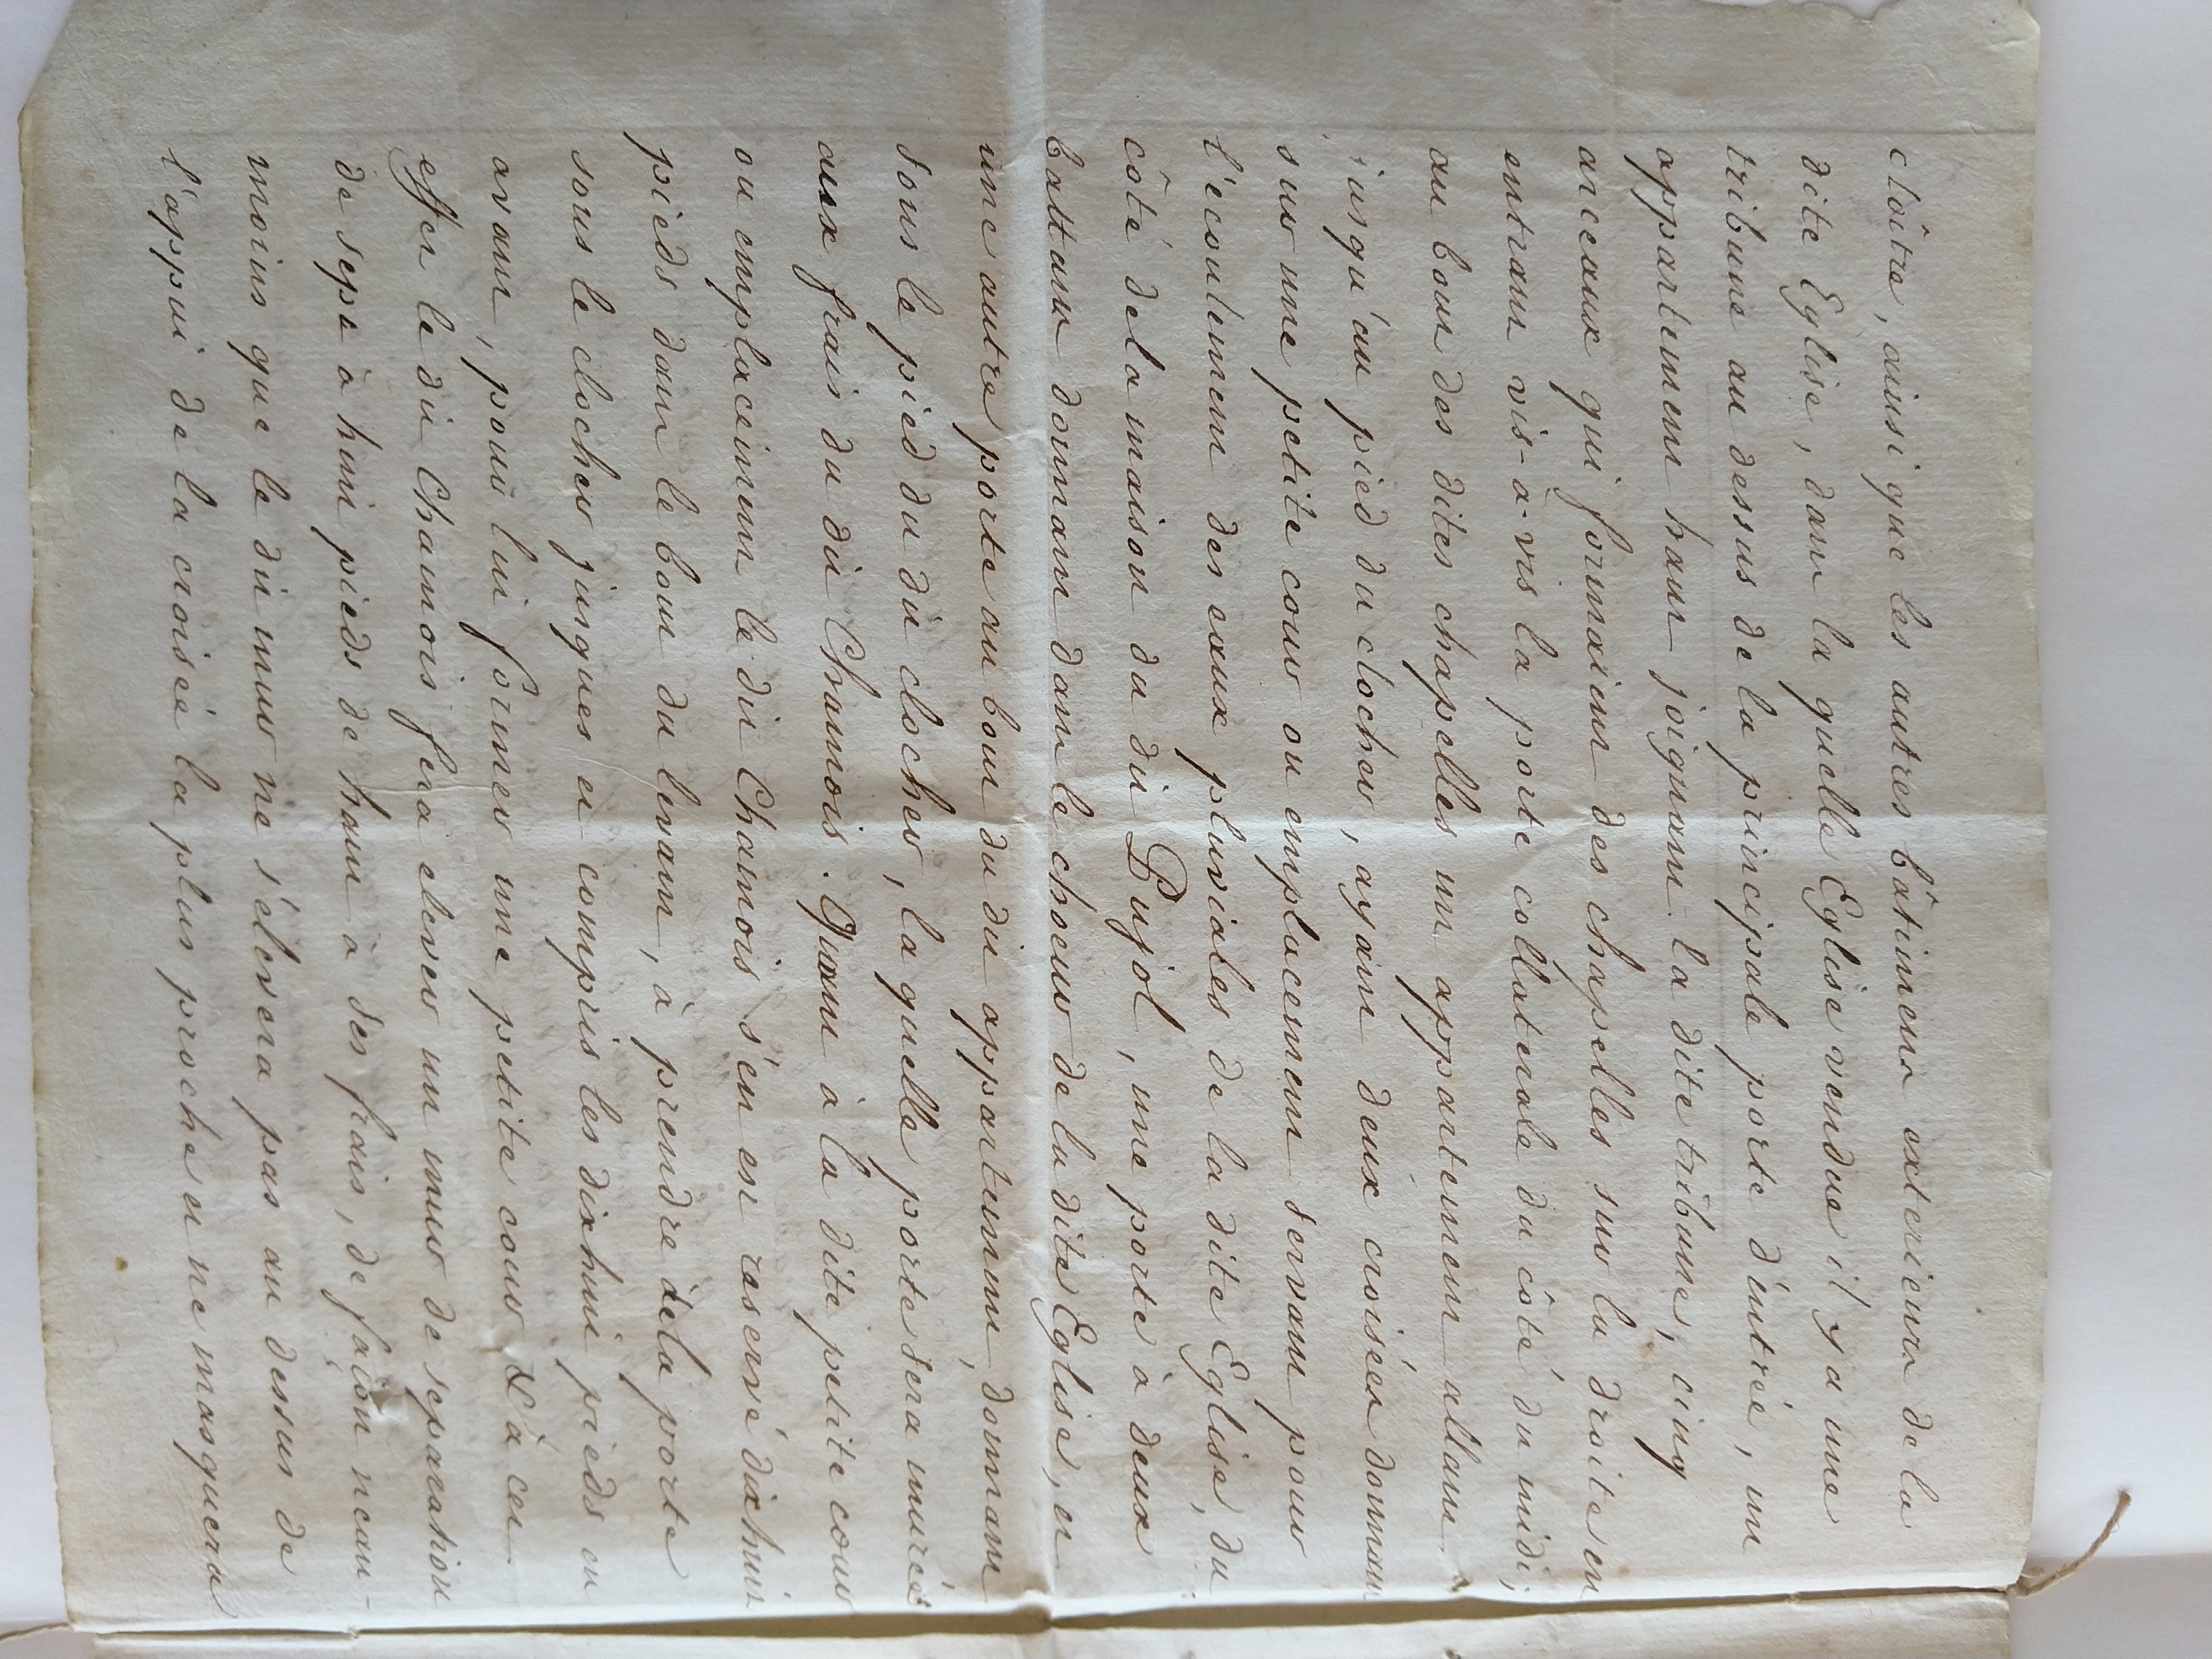 cloître, ainsi que les autres bâtimens exterieurs de la
dite Eglise, dans la quelle Eglise vendue il y a une
tribune au dessus de la principale porte d'entrée, un
appartement haut joignant la dite tribune, cinq
arceaux qui formaient des chapelles sur la droite en
entrant vis-à-vis la porte collaterale du côté du midi,
au bout des dites chapelles un appartement allant
jusqu'au pied du clocher, ayant deux croisées donnant
sur une petite cour ou emplacement servant pour
l'ecoulement des eaux pluviales de la dite Eglise, du
côté de la maison du dit Pujol, une porte à deux
battans donnant dans le choeur de la dite Eglise, et
une autre porte au bout du dit appartement, donnant
sous le pied du dit clocher, la quelle porte sera murée
aux frais du dit Chamois. Quant à la dite petite cour
ou emplacement le dit Chamois s'en est reservé dixhuit
pieds dans le bout du levant, à prendre de la porte
sous le clocher jusques et compris les dixhuit pieds en
avant, pour lui former une petite cour & à cet
effet le dit Chamois fera elever un mur de separation
de sept à huit pieds de haut à ses frais, de façon nean-
moins que le dit mur ne s'élevera pas au dessus de
l'appui de la croisée la plus proche et ne masquera